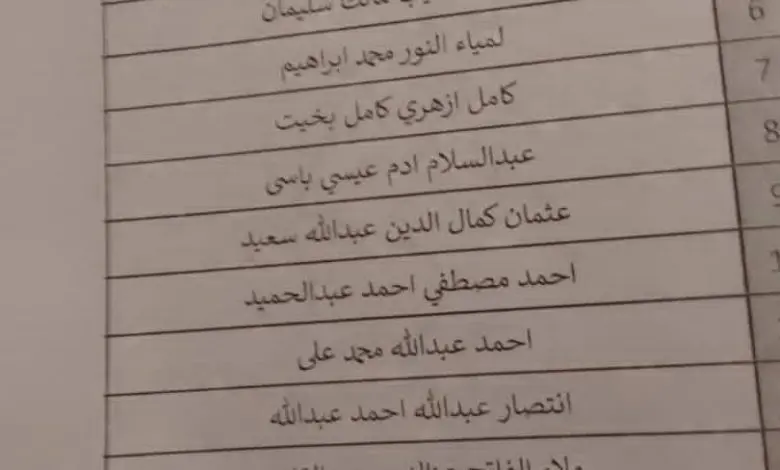 مالك سليمان
6 لمياء النور محمد ابراهيم
7 كامل ازهري كامل بخيت
8 عبدالسلام ادم عيسي باسى
9 عثمان كمال الدين عبدالله سعيد
احمد مصطفي احمد عبدالحميد
احمد عبدالله محمد على
انتصار عبدالله احمد عبدالله